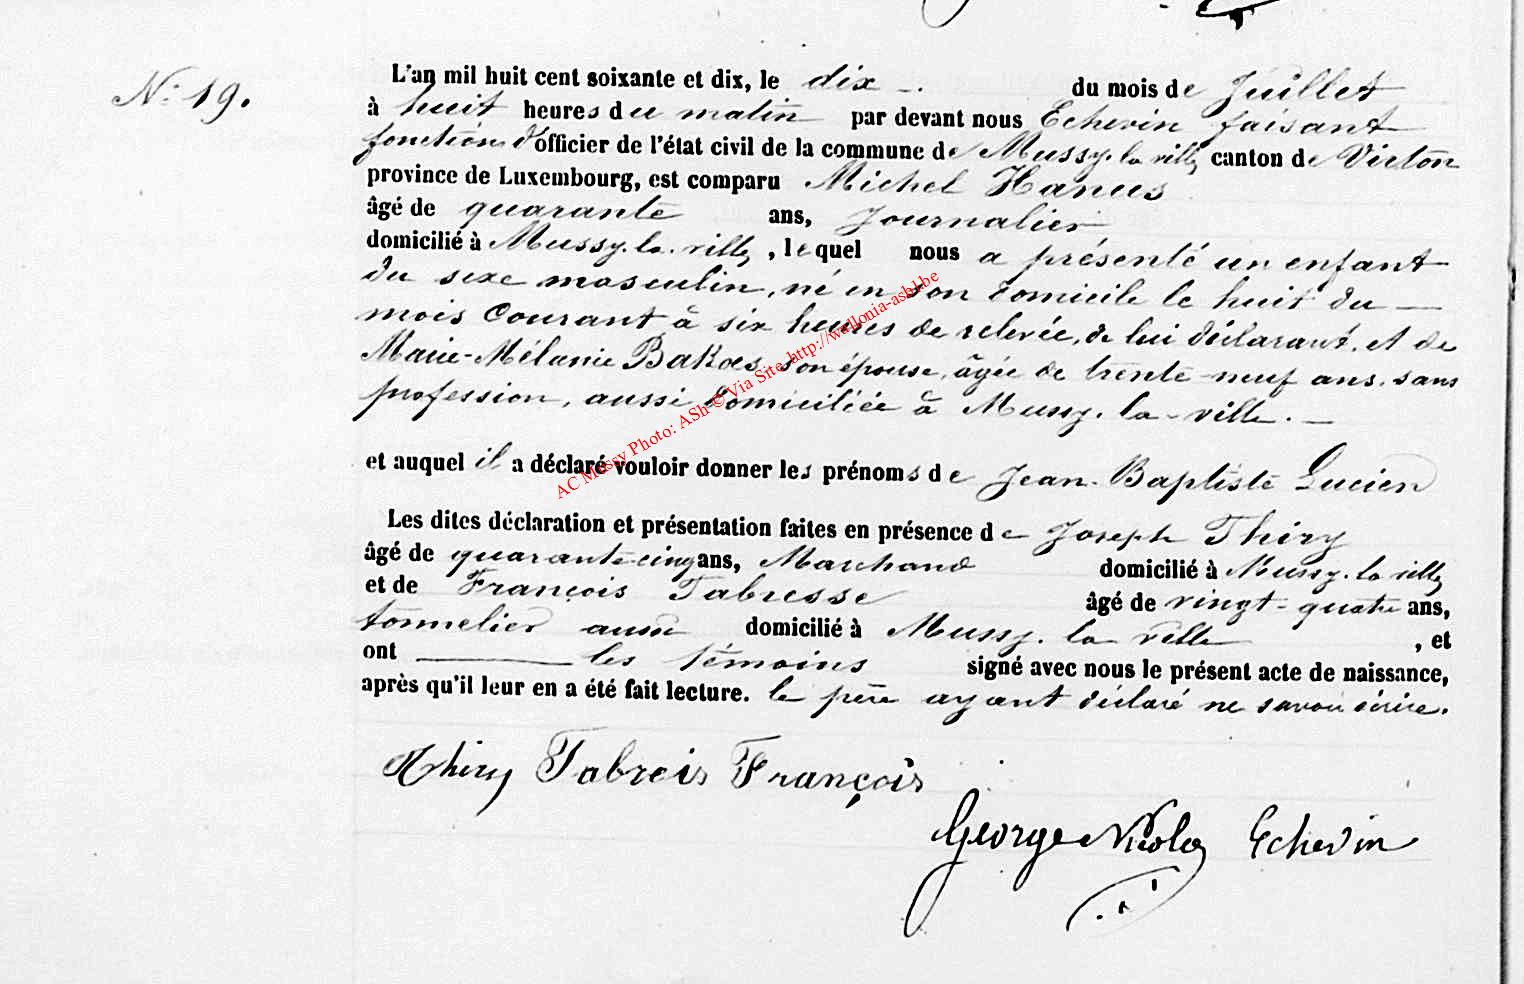 N: 19.
L'an mil huit cent soixante et dix, le dix du mois de Juillet
à huit heures du matin par devant nous Echevin faisant
fonctions d'officier de l'état civil de la commune de Mussy-la-ville, canton de Virton
province de Luxembourg, est comparu Michel Hanus
âgé de quarante ans, Journalier
domicilié à Mussy-la-ville, lequel nous a présenté un enfant
du sexe masculin, né en son domicile le huit du —
mois Courant à six heures de relevée, de lui déclarant, et de
Marie-Mélanie Bakoes, son épouse, âgée de trente-neuf ans, sans
profession, aussi domiciliée à Mussy-la-ville. —
et auquel il a déclaré vouloir donner les prénoms de Jean-Baptiste Lucien
Les dites déclaration et présentation faites en présence de Joseph Thiry
âgé de quarante-cinq ans, Marchand domicilié à Mussy-la-ville
et de François Tabresse âgé de vingt-quatre ans,
tonnelier aussi domicilié à Mussy-la-ville, et
ont — les témoins signé avec nous le présent acte de naissance,
après qu'il leur en a été fait lecture. le père ayant déclaré ne savoir écrire.
Thiry Tabreis François
George Nicolas Echevin
AC Mussy Photo: ASh © Via Site http://wallonia-ash1.be